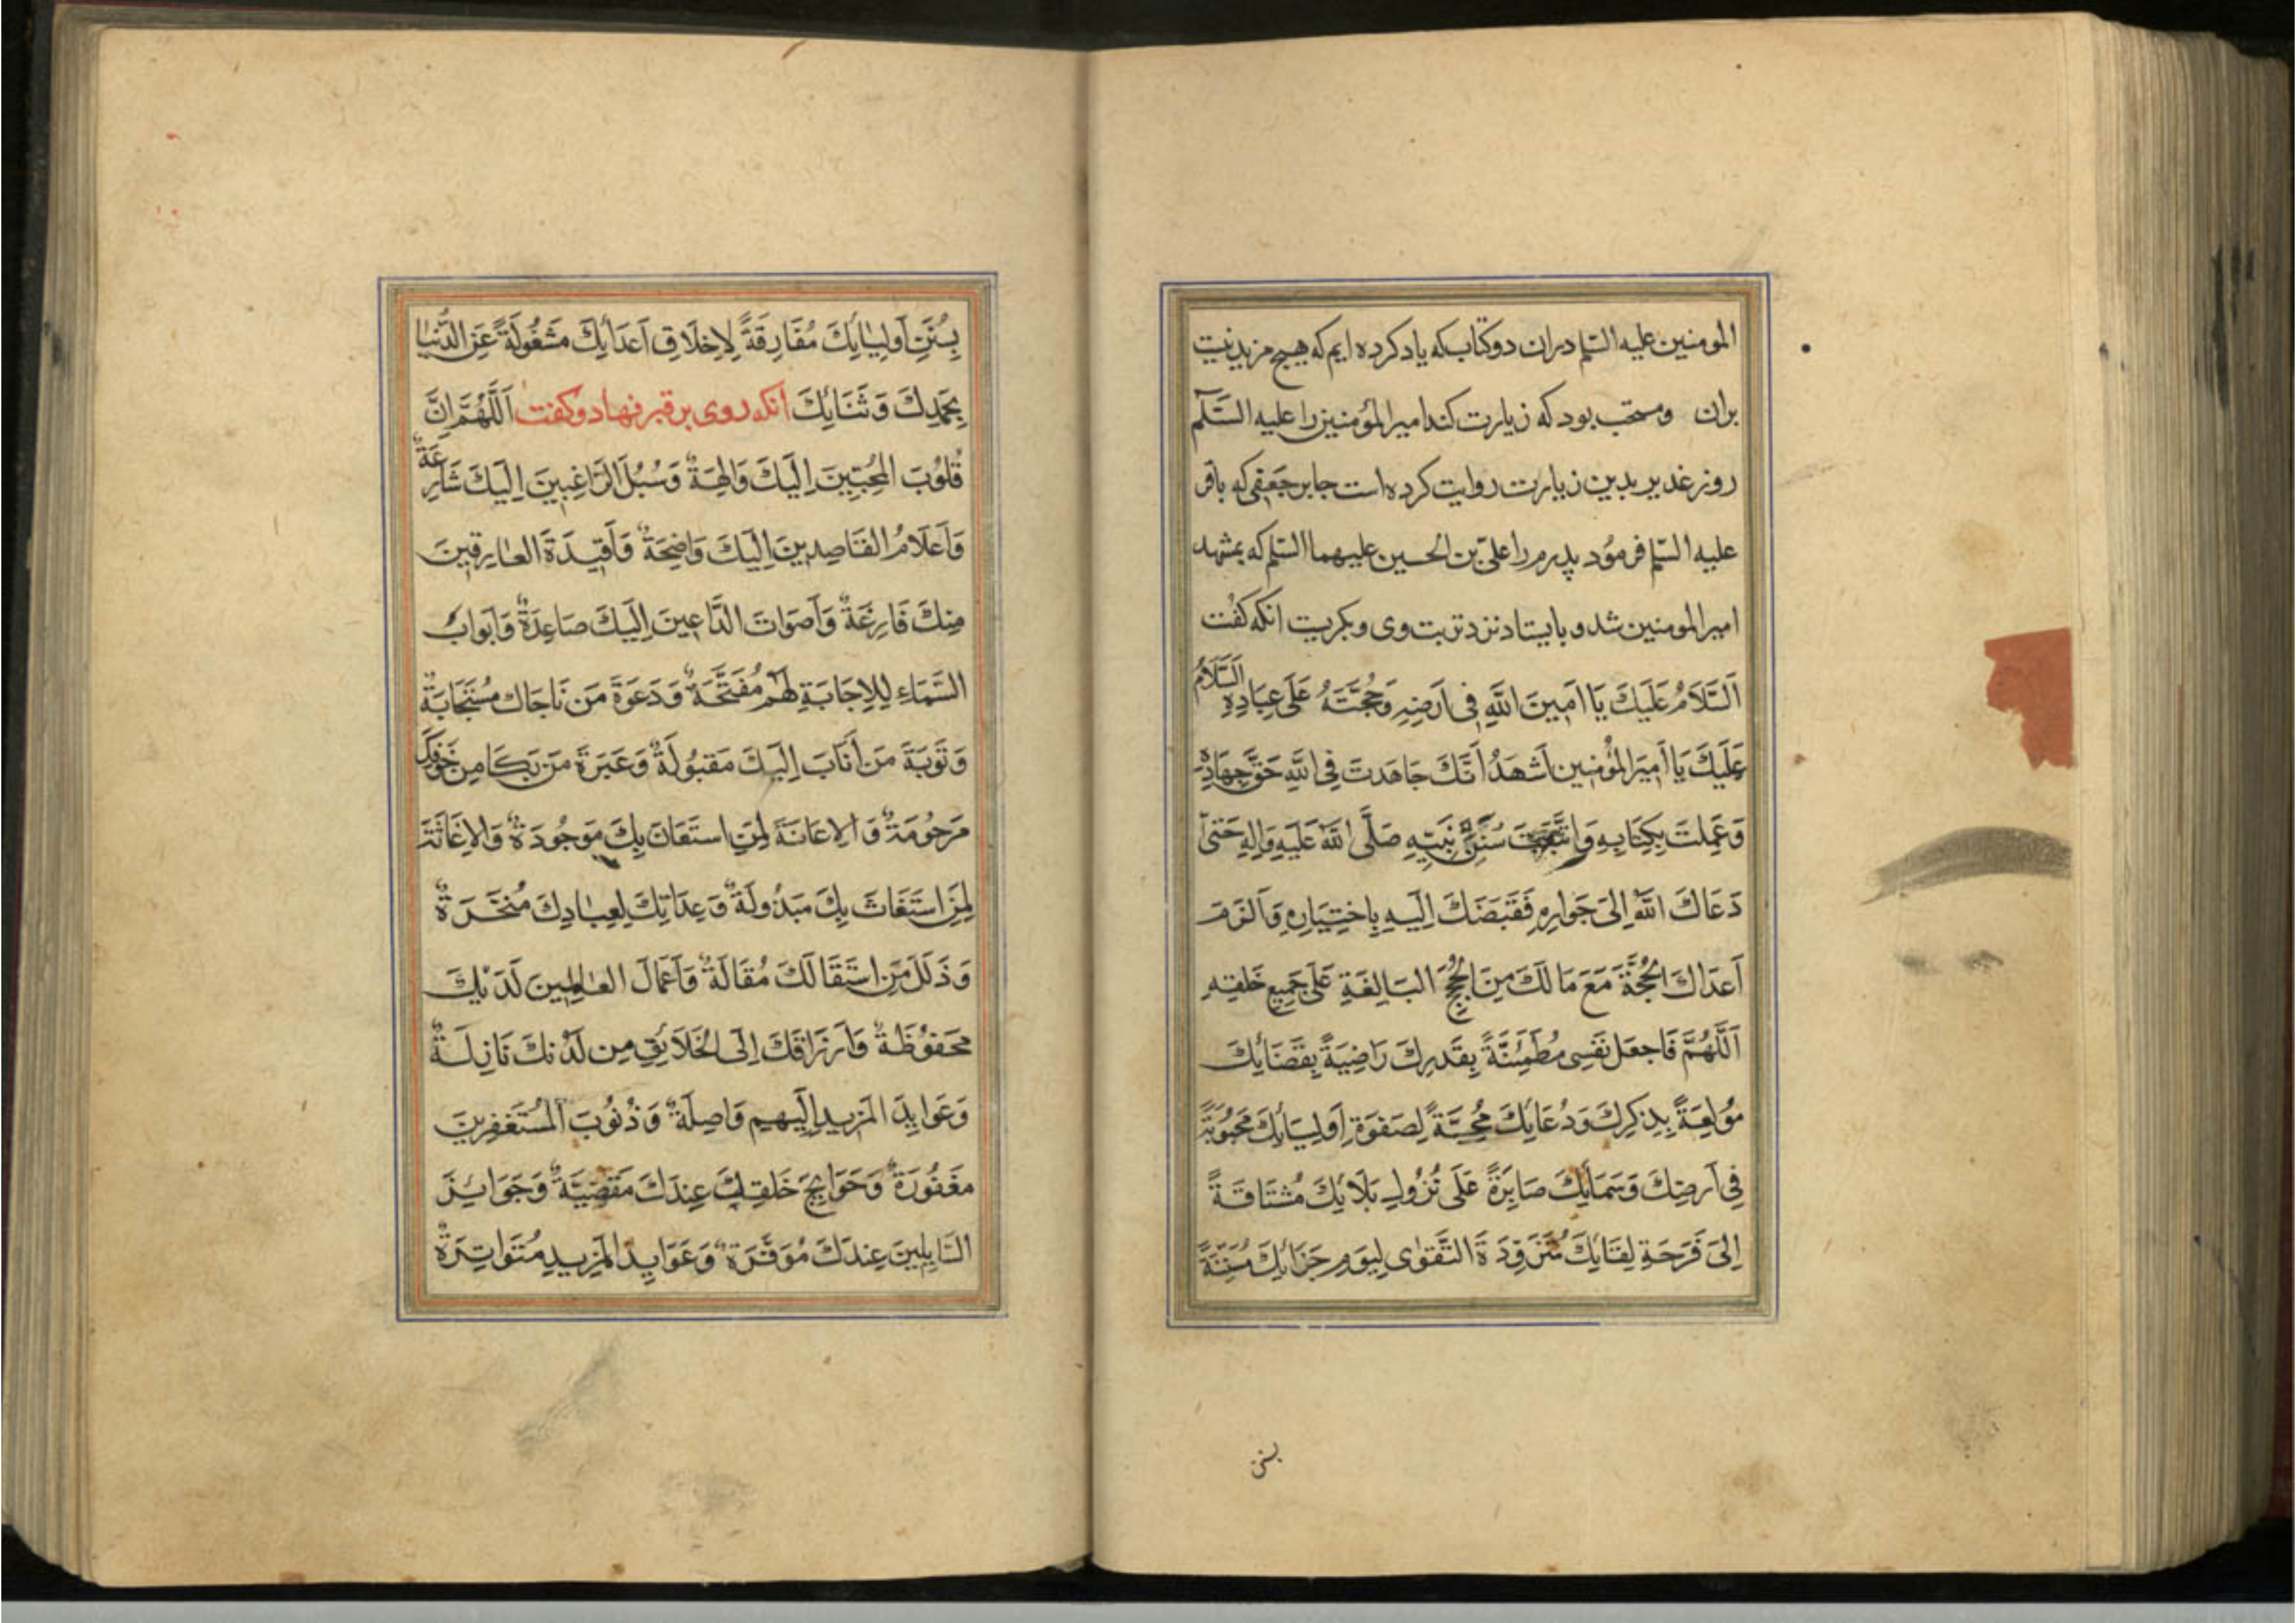 المومنین علیه السلم دران دو کتاب که یاد کرده ایم که هیچ مزید نیست
بران ومستحب بود که زیارت کند امیر المؤمنین را علیه السَّلَم
روز غدیر بدین زیارت روایت کرده است جابر جعفی که باقر
علیه السلم فرمود پدرم را علیّ بن الحسین علیهما السلم که بمشهد
امیر المومنین شد و بایستاد نزد تربت وی و بکریست انکه کفت
اَلسَّلَامُ عَلَيكَ يَا اَمِينَ اللَّهِ فِى اَرضِهِ وَحُجَّتَهُ عَلَى عِبَادِهِ السَّلَامُ
عَلَيكَ يَا اَمِيَر المُؤمِنين اَشهَدُ اَنَّكَ جَاهَدتَ فِى اللَّهِ حَقَّ جِهَادِهِ
وَعَمِلتَ بِكِتَابِهِ وَاتَّبَعتَ سُنَنَ نَبِيِّهِ صَلَّى اللَّهُ عَلَيهِ وَالِهِ حَتىَّ
دَعَاكَ اللَّهُ اِلىَ جَوارِهِ فَقَبَضَكَ اِلَيهِ بِاختِيَارِهِ وَاَلزَمَ
اَعدَاكَ الحُجَّةَ مَعَ مَا لَكَ مِنَ الحُجَجِ البَالِغَةِ عَلَى جَمِيعِ خَلقِهِ
اَللَّهُمَّ فَاجعَل نَفسِى مُطمَئِنَّةً بِقَدرِكَ رَاضِيَةً بِقَضَائِكَ
مُولِعَةً بِذِكرِكَ وَدُعَائِكَ مُحِبَّةً لِصَفوَةِ اَولِيَائِكَ مَحبُوبَةً
فِى اَرضِكَ وَسَمَائِكَ صَابِرَةً عَلَى نُزُولِ بَلَائِكَ مُشتَاقَةً
اِلىَ فَرَحَةِ لِقَائِكَ مُتَزَوِّدَةَ التَّقوٰى لِيَومِ جَزَائِكَ مُستَنَّةً
بسنن
بِسُنَنِ اَولِيٰائِكَ مُفَارِقَةً لِاِخلَاقِ اَعدَائِكَ مَشغُولَةً عَنِ الدُّنيٰا
بِحَمدِكَ وَثَنَائِكَ انکه روی بر قبر نهاد و کفت اَللَّهُمَّ اِنَّ
قُلوُبَ المُخبِتِينَ اِلَيكَ وَالِهَةٌ وَسُبُلَ الرَّاغِبِينَ اِلَيكَ شَارِعَةٌ
وَاَعلَامُ القَاصِدِينَ اِلَيكَ وَاضِحَةٌ وَاَفئِدَةَ العٰارِفِينَ
مِنكَ فَازِعَةٌ وَاَصوَاتَ الدَّاعِينَ اِلَيكَ صَاعِدَةٌ وَاَبوَابَ
السَّمَاءِ لِلِاجَابَةِ لَهُم مُفَتَّحَةٌ وَدَعوَةَ مَن نَاجَاكَ مُستَجَابَةٌ
وَتَوبَةَ مَن اَنَابَ اِلَيكَ مَقبُولَةٌ وَعَبرَةَ مَن بَكَا مِن خَوفِكَ
مَرحُومَةٌ وَالاِعَانَةَ لِمَنِ استَعَانَ بِكَ مَوجُودَةٌ وَالاِغَاثَةَ
لِمَنِ استَغَاثَ بِكَ مَبذُولَةٌ وَعِدَاتِكَ لِعِبٰادِكَ مُنجَزَةٌ
وَذَلَلَ مَنِ استَقَالَكَ مُقَالَةٌ وَاَعمَالَ العٰامِلِينَ لَدَيكَ
مَحفُوظَةٌ وَاَرزَاقَكَ اِلَى الخَلَائِقِ مِن لَدُنكَ نَازِلَةٌ
وَعَوَايِدَ المَزيدِ اِلَيهِم وَاصِلَةٌ وَذُنُوبَ المُستَغفِرِينَ
مَغفُورَةٌ وَحَوَائِجَ خَلقِكَ عِندَكَ مَقضِيَّةٌ وَجَوَائِزَ
السَّايِلِينَ عِندَكَ مُوَفَّرَةٌ وَعَوَايِدَ المَزِيدِ مُتَواتِرَةٌ